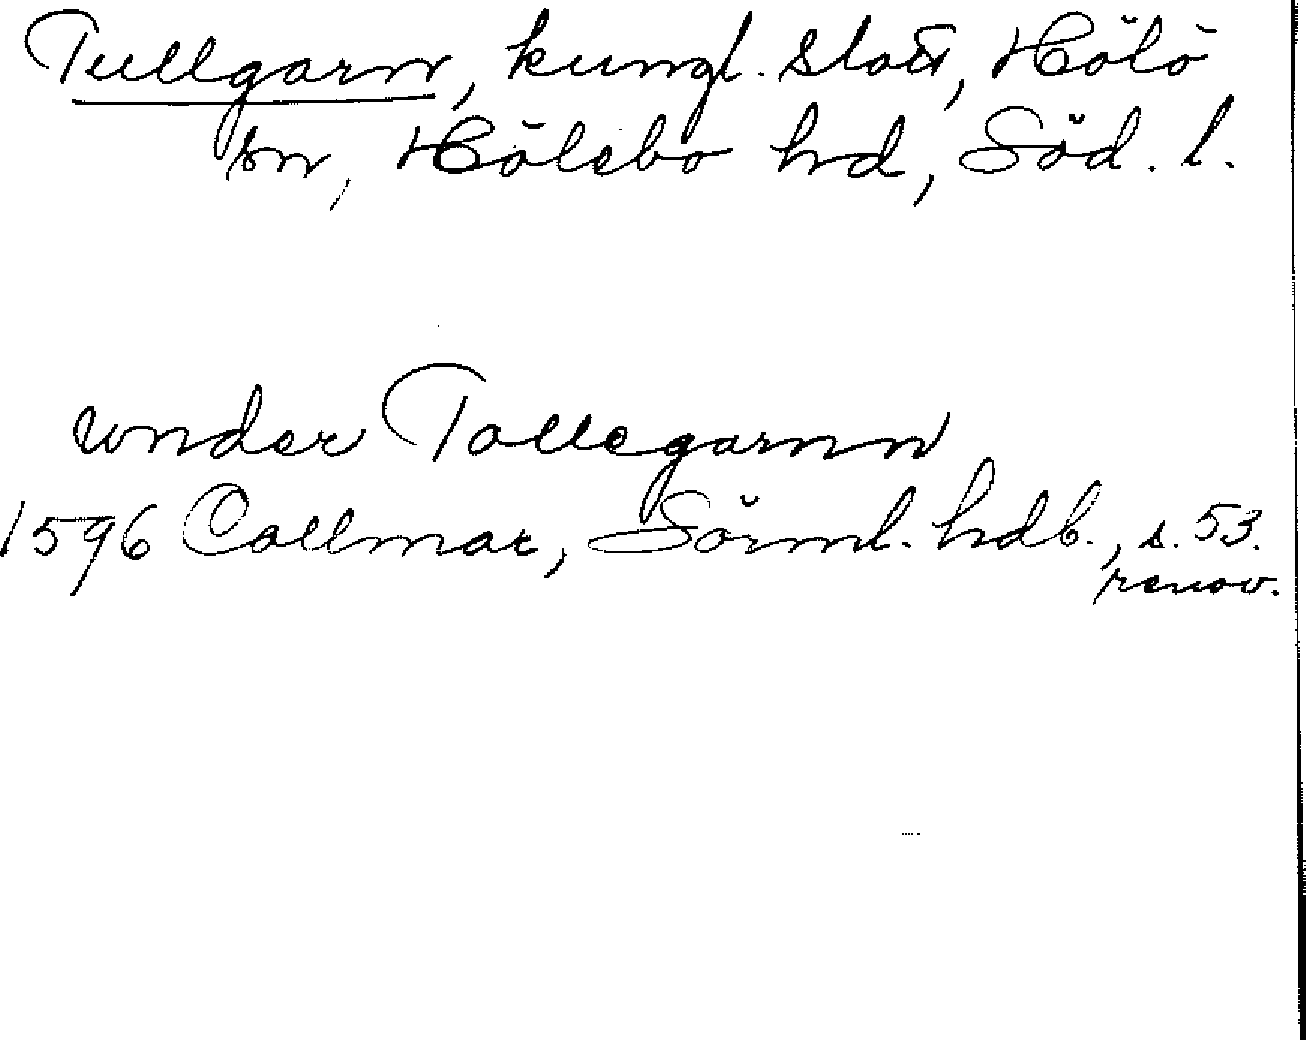 Tullgarn, kungl. slott, Hölö
sn, Hölebo hd, Söd. l.
under Tollegarnn
1596 Collmar, Sörml. hdb., s. 53.
renov.